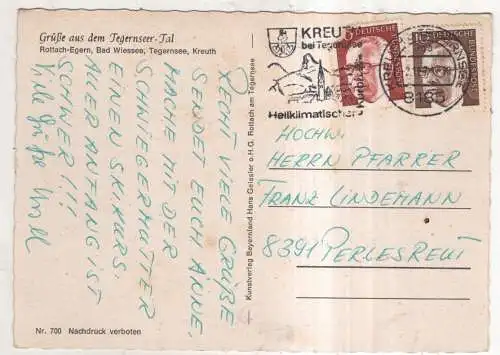 Grüße aus dem Tegernseer-Tal
Rottach-Egern, Bad Wiessee, Tegernsee, Kreuth
RECHT VIELE GRÜßE
SENDET EUCH ANNE,
MACHE MIT DER
SCHWIEGERMUTTER
EINEN SKIKURS.
ALLER ANFANG IST
SCHWER!!!
Viele Grüße
Nr. 700 Nachdruck verboten
Kunstverlag Bayernland Hans Geissler o.H.G. Rottach am Tegernsee
KREUTH
bei Tegernsee
Heilklimatischer
DEUTSCHE
BUNDESPOST
HOCHW.
HERRN PFARRER
FRANZ LINDEMANN
8391 PERLESREUT